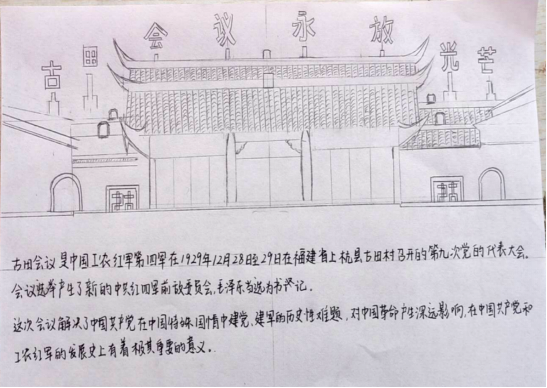 古田会议永放光芒
古田会议是中国工农红军第四军在1929年12月28日至29日在福建省上杭县古田村召开的第九次党的代表大会。
会议选举产生了新的中共红四军前敌委员会,毛泽东当选为书记。
这次会议解决了中国共产党在中国特殊国情中建党、建军的历史性难题,对中国革命产生深远影响,在中国共产党和
工农红军的发展史上有着极其重要的意义。